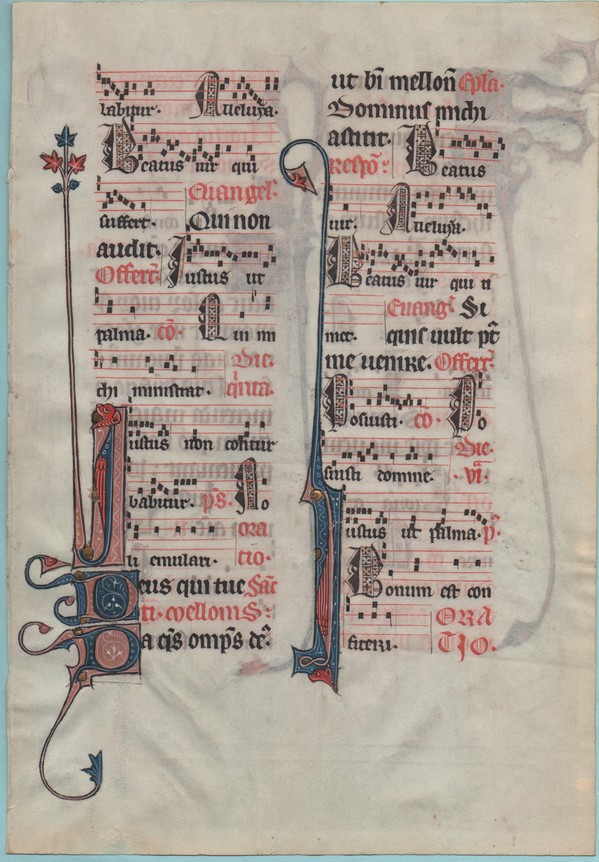 babitur. Alleluya.
Beatus uir qui
Euangel.
suffert. Qui non
audit.
Offert. Iustus ut
palma. co. Qui mi
Die
chi ministrat. quinta.
Iustus non contur
babitur. ps. No
ora
li emulari. tio.
Deus qui tue Sancti
ti. melloni S:
Da qs omps ds.
ut bi mellon Epla.
Dominus michi
astitit. Beatus
Respo:
uir. Alleluya.
Beatus uir qui ti
Euang. Si
met. quis uult pt
me uenire. Offert.
Posuisti. co. Po
Die
suisti domine. vi.
Iustus ut palma. p.
Bonum est con
ORA
fiteri. TIO.